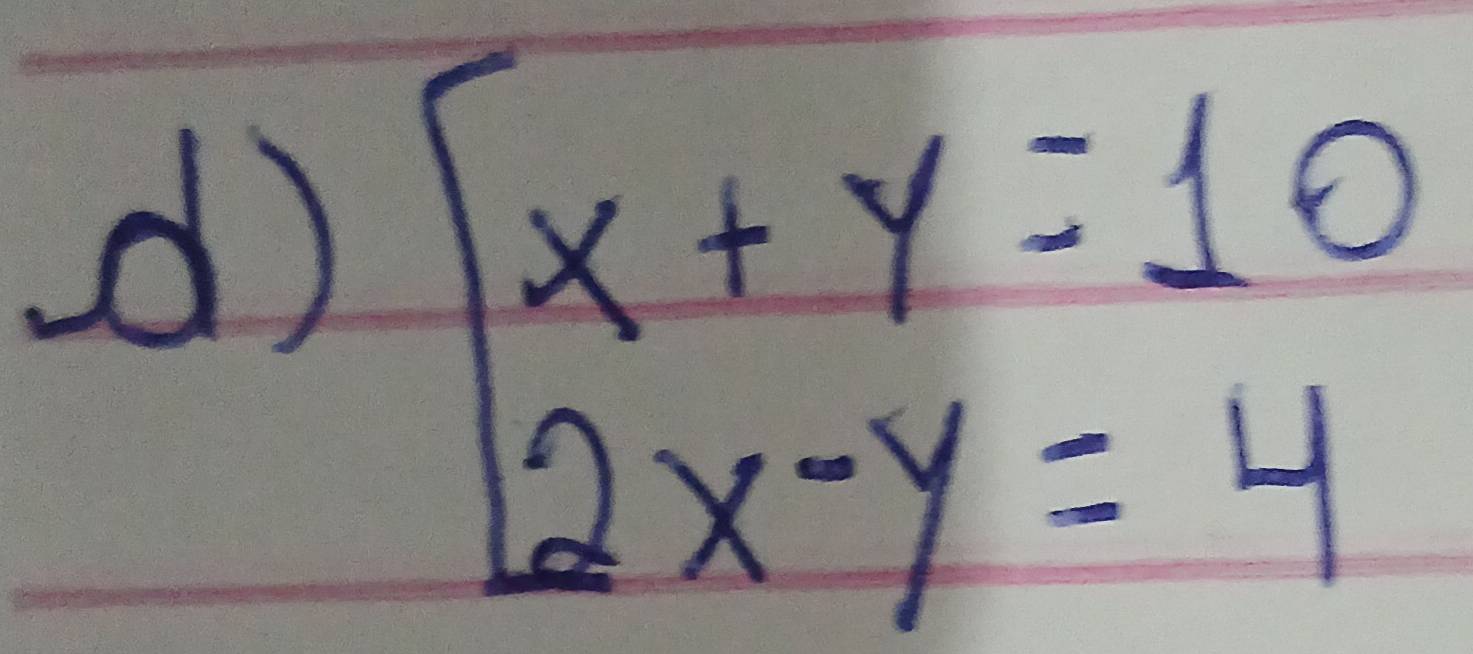 d) [x + y = 10
2x - y = 4